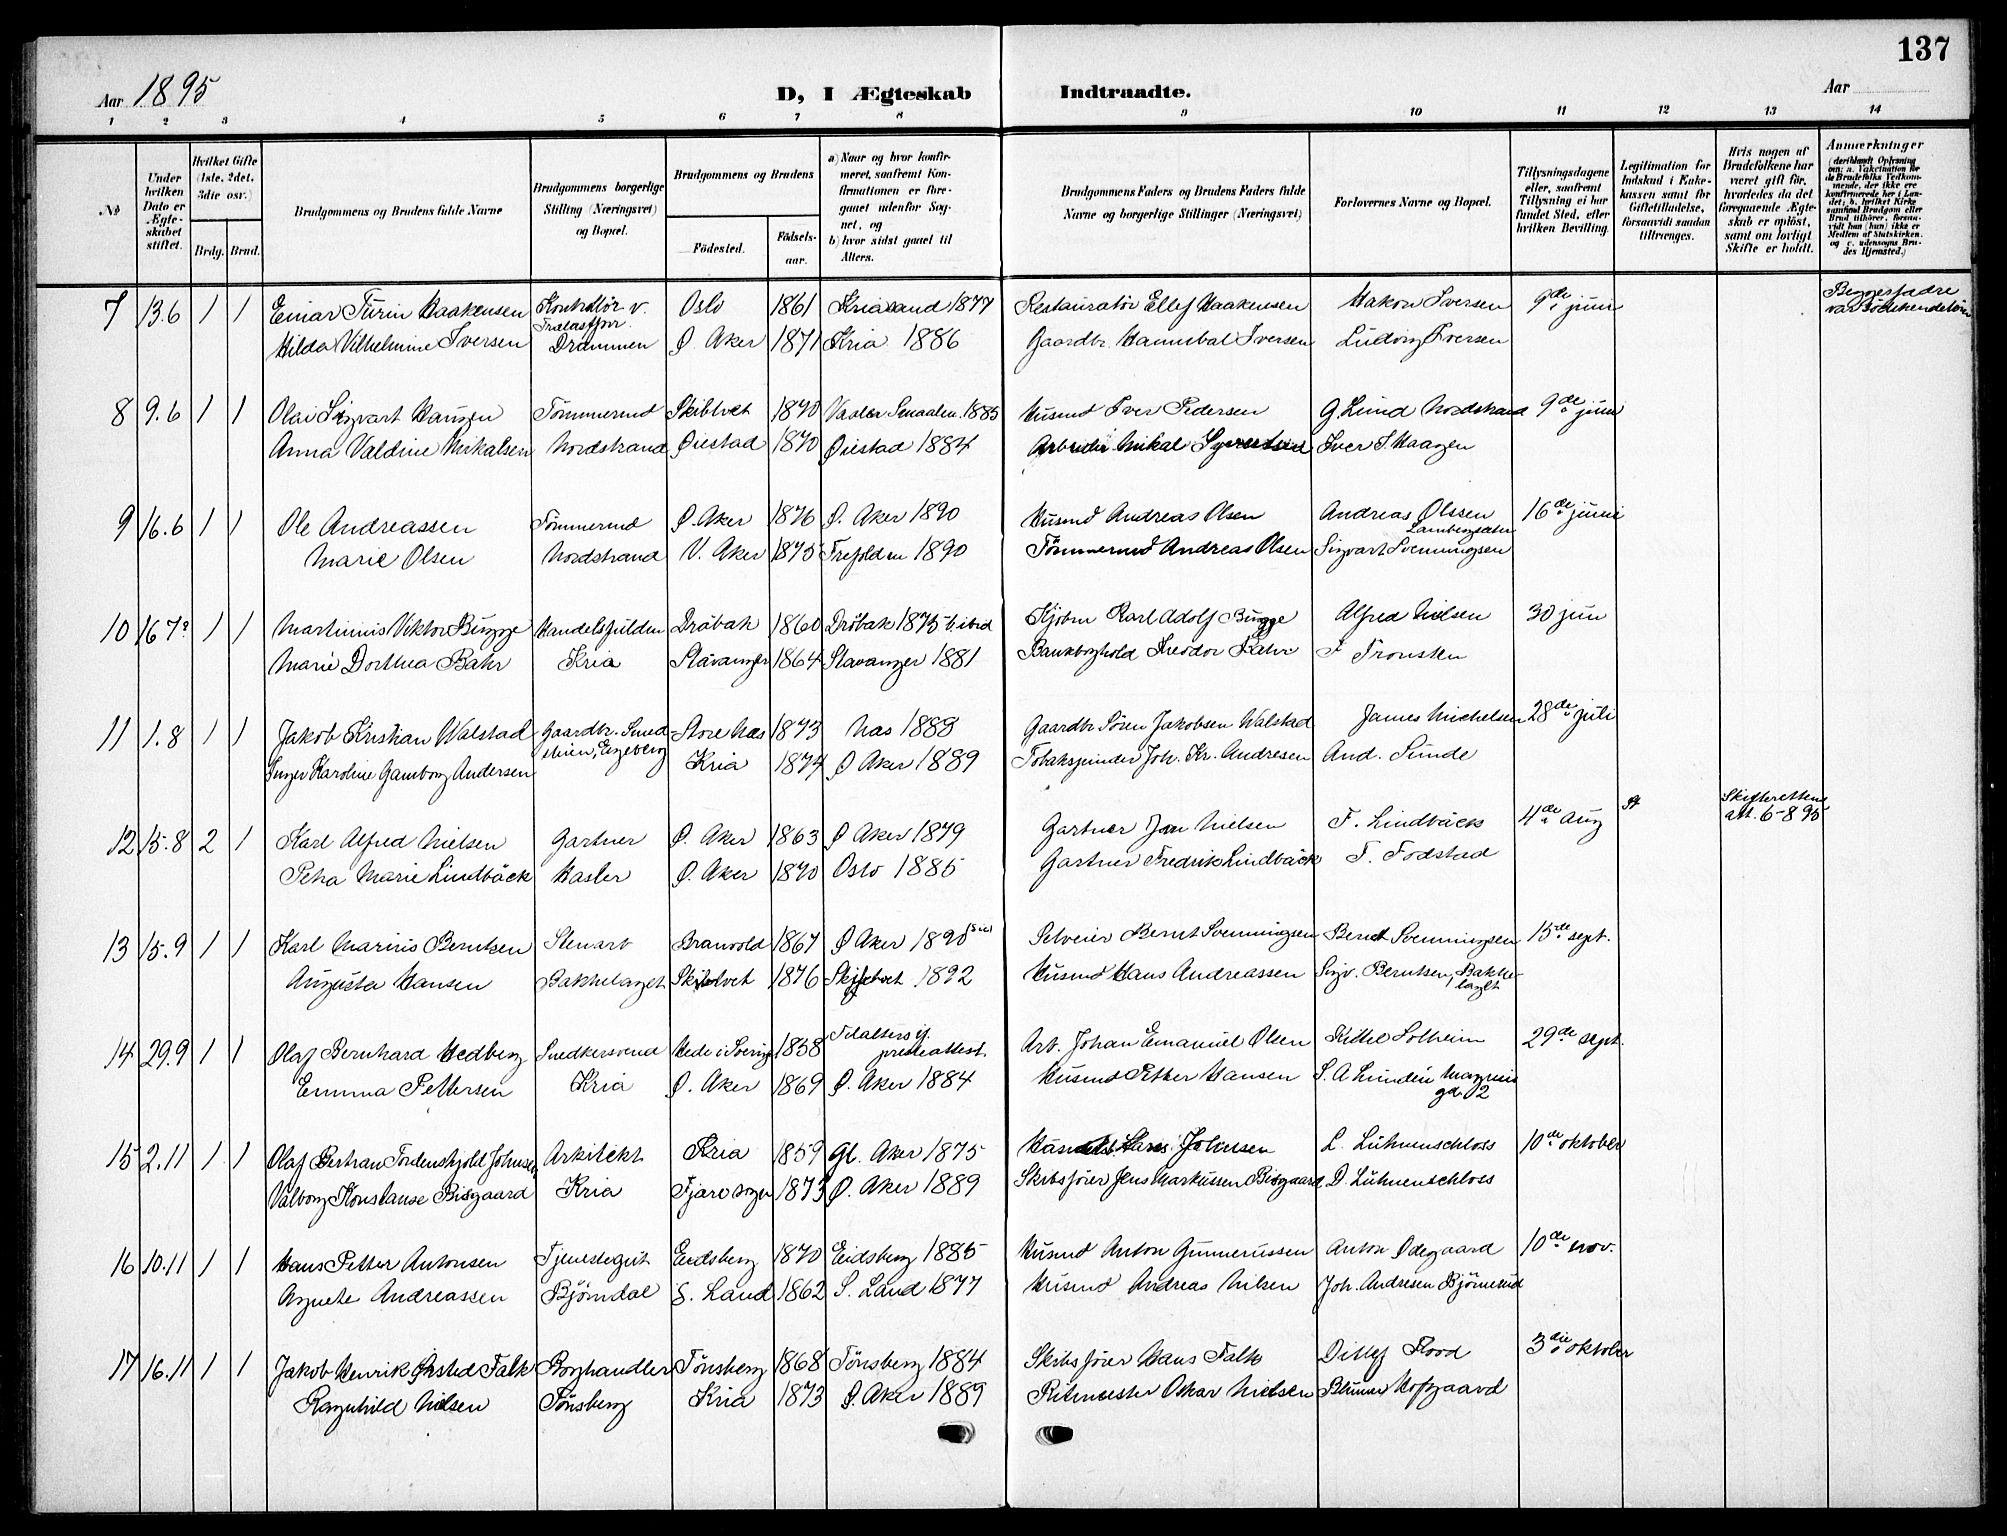 137
Aar 1895
D, I Ægteskab Indtraadte.
Aar
1 2 3 4 5 6 7 8 9 10 11 12 13 14
No
Under hvilken Dato er Ægteskabet stiftet.
Hvilket Gifte (1ste, 2det, 3die osv.)
Brdg. Brud.
Brudgommens og Brudens fulde Navne
Brudgommens borgerlige Stilling (Næringsvei) og Bopæl.
Brudgommens og Brudens
Fødested.
Fødsels-aar.
a) Naar og hvor konfirmeret, saafremt Konfirmationen er foregaaet udenfor Sognet, og
b) hvor sidst gaaet til Alters.
Brudgommens Faders og Brudens Faders fulde Navne og borgerlige Stillinger (Næringsvei)
Forlovernes Navne og Bopæl.
Tillysningsdagene eller, saafremt Tillysning ei har fundet Sted, efter hvilken Bevilling.
Legitimation for Indskud i Enkekassen samt for Giftetilladelse, forsaavidt saadan tiltrænges.
Hvis nogen af Brudefolkene har været gift før, hvorledes da det foregaaende Ægteskab er opløst, samt om lovligt Skifte er holdt.
Anmærkninger
7 13.6 1 1 Einar Turin Haakensen Kontrollør v. Oslo 1861 Kriasand 1877 Restauratør Ellef Haakensen Hakon Iversen 9de juni
Hilda Vilhelmine Iversen Drammen Ø Aker 1871 Kria 1886 Gaardbr. Hannibal Iversen Ludvig Iversen
8 9.6 1 1 Olai Sigvart Hansen Tømmermd Skibtvet 1870 Vaaler Smaalen. 1885 Husmd Iver Pedersen G Lund Nordstrand 9de juni
Anna Valdine Mikalsen Nordstrand Øiestad 1870 Øiestad 1884 Arbeider Mikal Syvertsen Iver S. Haagen
9 16.6 1 1 Ole Andreassen Tømmermd Ø. Aker 1876 Ø. Aker 1890 Husmd Andreas Olsen Andreas Olssen 16de juni
Marie Olsen Nordstrand V. Aker 1875 Trefolden 1890 Tømmermd Andreas Olsen Sigvart Svenningsen
10 16 7? 1 1 Martinius Viktor Bugge Handelsfuldm Drøbak 1860 Drøbak 1875 b. ibid Kjøbm Karl Adolf Bugge Alfred Nielsen 30 jun
Marie Dorthea Bahr Kria Stavanger 1864 Stavanger 1881 Bankboghold Theodor Bahr F Tronsten
11 1.8 1 1 Jakob Kristian Walstad Gaardbr. Store Næs 1873 Næs 1888 Gaardbr Søren Jakobsen Walstad James Michelsen 28de juli
Inger Karoline Gamborg Andersen Kria 1874 Ø Aker 1889 Tobakspinder Joh. Kr. Andresen And. Sunde
12 15.8 2 1 Karl Alfred Nielsen Gartner Ø. Aker 1863 Ø Aker 1879 Gartner Jon Nielsen F. Lindbäck 4de aug Skifterettens att. 6-8 95
Petra Marie Lindbäck Hasler Ø. Aker 1870 Oslo 1885 Gartner Fredrik Lindbäck T. Fodstad
13 15.9 1 1 Karl Marius Berntsen Stenarb Branvold 1867 Ø Aker 1890 (sic) Selveier Bernt Svenningsen Bernt Svenningsen 15de sept.
Augusta Hansen Bakkelaget Skibtvet 1876 Skibtvet 1892 Husmd Hans Andreassen Sigv. Berntsen, Bakkelaget
14 29.9 1 1 Olaf Bernhard Hedberg Snedkersvend Hede i Sverig 1858 Arb. Johan Emanuel Olsen Kittel Solheim 29de sept.
Emma Pettersen Kria Ø. Aker 1869 Ø. Aker 1884 Husmd Petter Hansen S. A Lundén Magnus gd. 2
15 2.11 1 1 Olaf Bertran Tordenskjold Johnsen Arkitekt Kria 1859 Gl. Aker 1875 Lars Johnsen L. Lühnenschloss 10de oktober
Valborg Konstanse Bisgaard Kria Fjære sogn 1873 Ø. Aker 1889 Skibsfører Jens Markussen Bisgaard D. Lühnenschloss
16 10.11 1 1 Hans Petter Antonsen Tjenestegut Eidsberg 1870 Eidsberg 1885 Husmd Anton Gunnerussen Anton Ødegaard 10de nov.
Agnete Andreassen Bjørndal S. Land 1862 S. Land 1877 Husmd Andreas Nilsen Joh. Andresen Bjørnerud
17 16.11 1 1 Jakob Henrik Ørsted Falk Boghandler Tønsberg 1868 Tønsberg 1884 Skibsfører Hans Falk Ditlef Flood 3die oktober
Ragnhild Nielsen Tønsberg Kria 1873 Ø. Aker 1889 Ritmester Oskar Nielsen Hofgaard